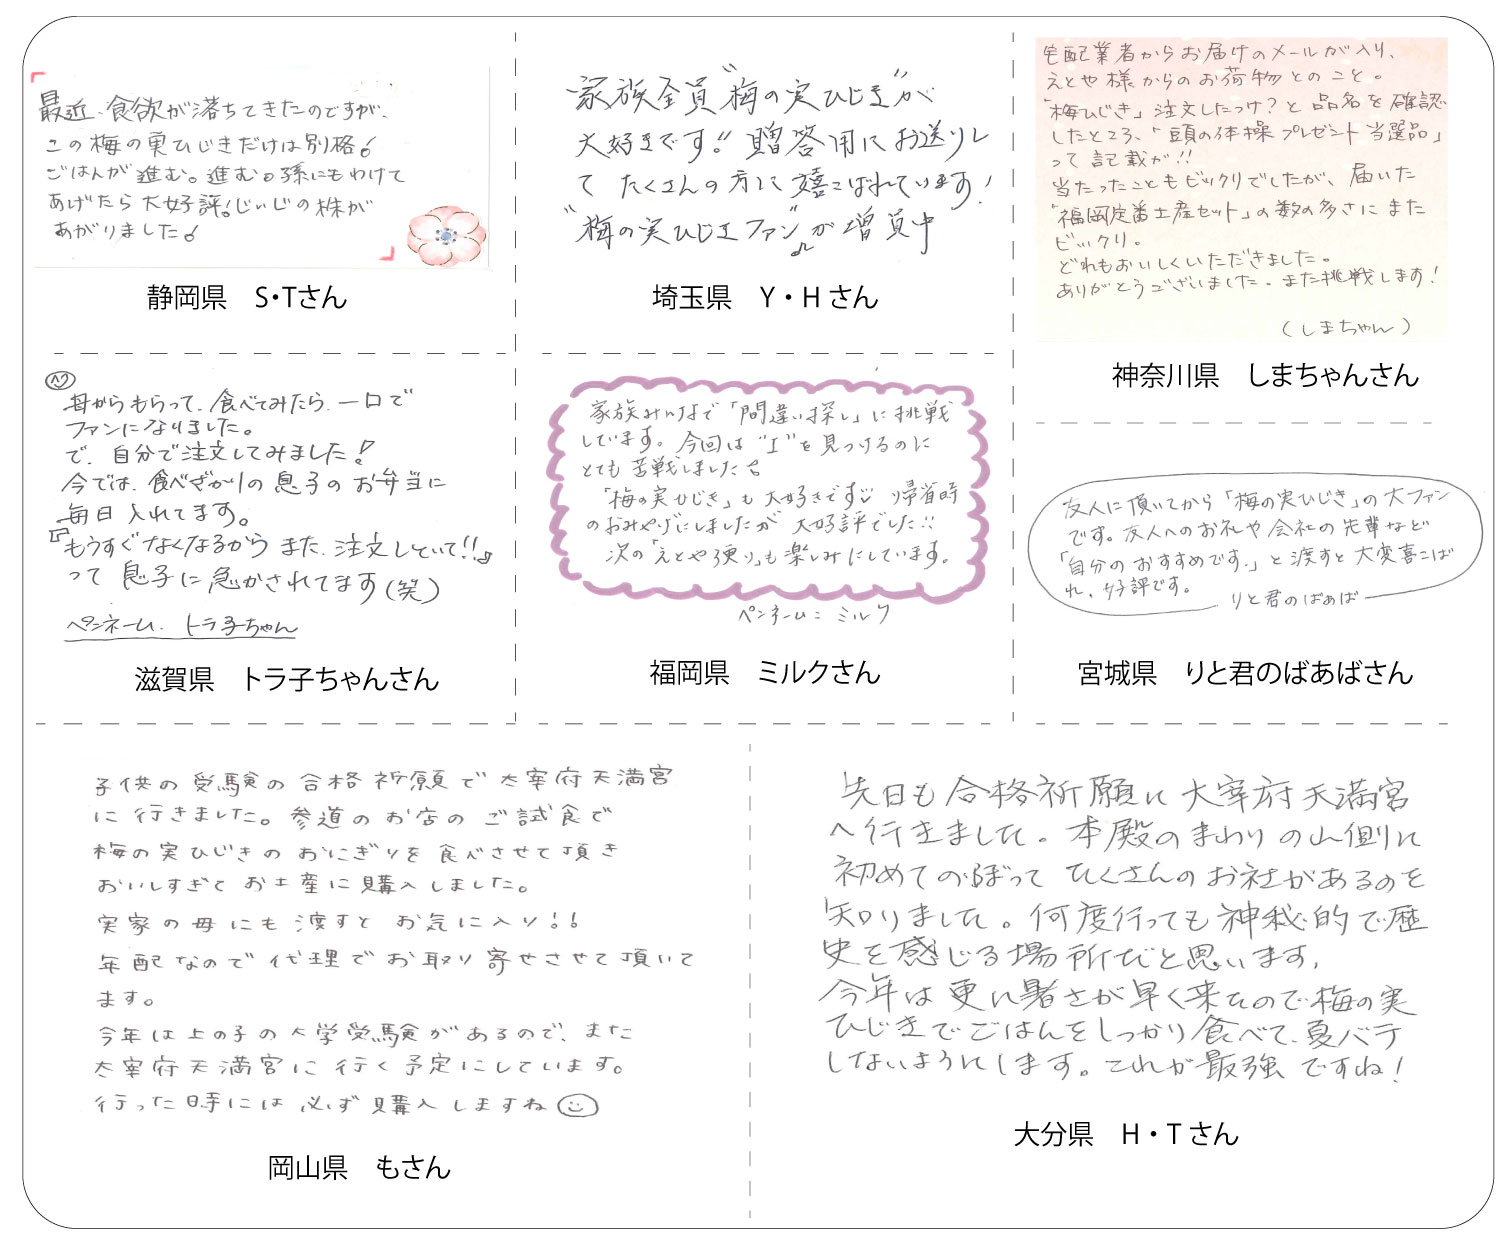 最近、食欲が落ちてきたのですが、
この梅の実ひじきだけは別格!
ごはんが進む。進む。孫にもわけて
あげたら大好評!じぃじの株が
あがりました!
静岡県 S・Tさん
家族全員“梅の実ひじき”が
大好きです!!贈答用にお送りし
て たくさんの方に喜こばれています!
“梅の実ひじきファン”が増員中♪
埼玉県 Y・Hさん
宅配業者からお届けのメールが入り、
えとや様からのお荷物とのこと。
「梅ひじき」注文したっけ?と品名を確認
したところ、「頭の体操プレゼント当選品」
って記載が!!
当たったこともビックリでしたが、届いた
「福岡定番土産セット」の数の多さにまた
ビックリ。
どれもおいしくいただきました。
ありがとうございました。また挑戦します!
(しまちゃん)
神奈川県 しまちゃんさん
母からもらって、食べてみたら、一口で
ファンになりました。
で、自分で注文してみました!
今では、食べざかりの息子のお弁当に
毎日入れてます。
『もうすぐなくなるから また、注文しといて!!』
って息子に急かされてます(笑)
ペンネーム、トラ子ちゃん
滋賀県 トラ子ちゃんさん
家族みいなで「間違い探し」に挑戦
しています。今回は“I”を見つけるのに
とても苦戦しました
「梅の実ひじき」も大好きです 帰省時
のおみやげにしましたが 大好評でした!!
次の「えとや便り」も楽しみにしています。
ペンネーム:ミルク
福岡県 ミルクさん
友人に頂いてから「梅の実ひじき」の大ファン
です。友人へのお礼や会社の先輩など
「自分のおすすめです。」と渡すと大変喜こば
れ、好評です。
りと君のばぁば
宮城県 りと君のばあばさん
子供の受験の合格祈願で太宰府天満宮
に行きました。参道のお店のご試食で
梅の実ひじきのおにぎりを食べさせて頂き
おいしすぎてお土産に購入しました。
実家の母にも渡すとお気に入り!!
年配なので代理でお取り寄せさせて頂いて
ます。
今年は上の子の大学受験があるので、また
太宰府天満宮に行く予定にしています。
行った時には必ず購入しますね
岡山県 もさん
先日も合格祈願に大宰府天満宮
へ行きました。本殿のまわりの山側に
初めてのぼって たくさんのお社があるのを
知りました。何度行っても神秘的で歴
史を感じる場所だと思います。
今年は更に暑さが早く来たので梅の実
ひじきでごはんをしっかり食べて、夏バテ
しないようにします。これが最強ですね!
大分県 H・Tさん